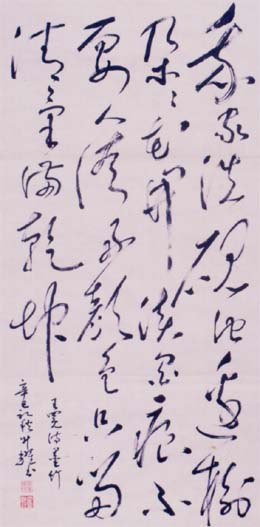 我家洗硯池邊樹
朵朵花開淡墨痕不
要人誇好顏色只留
清氣滿乾坤
王冕詩墨
辛巳